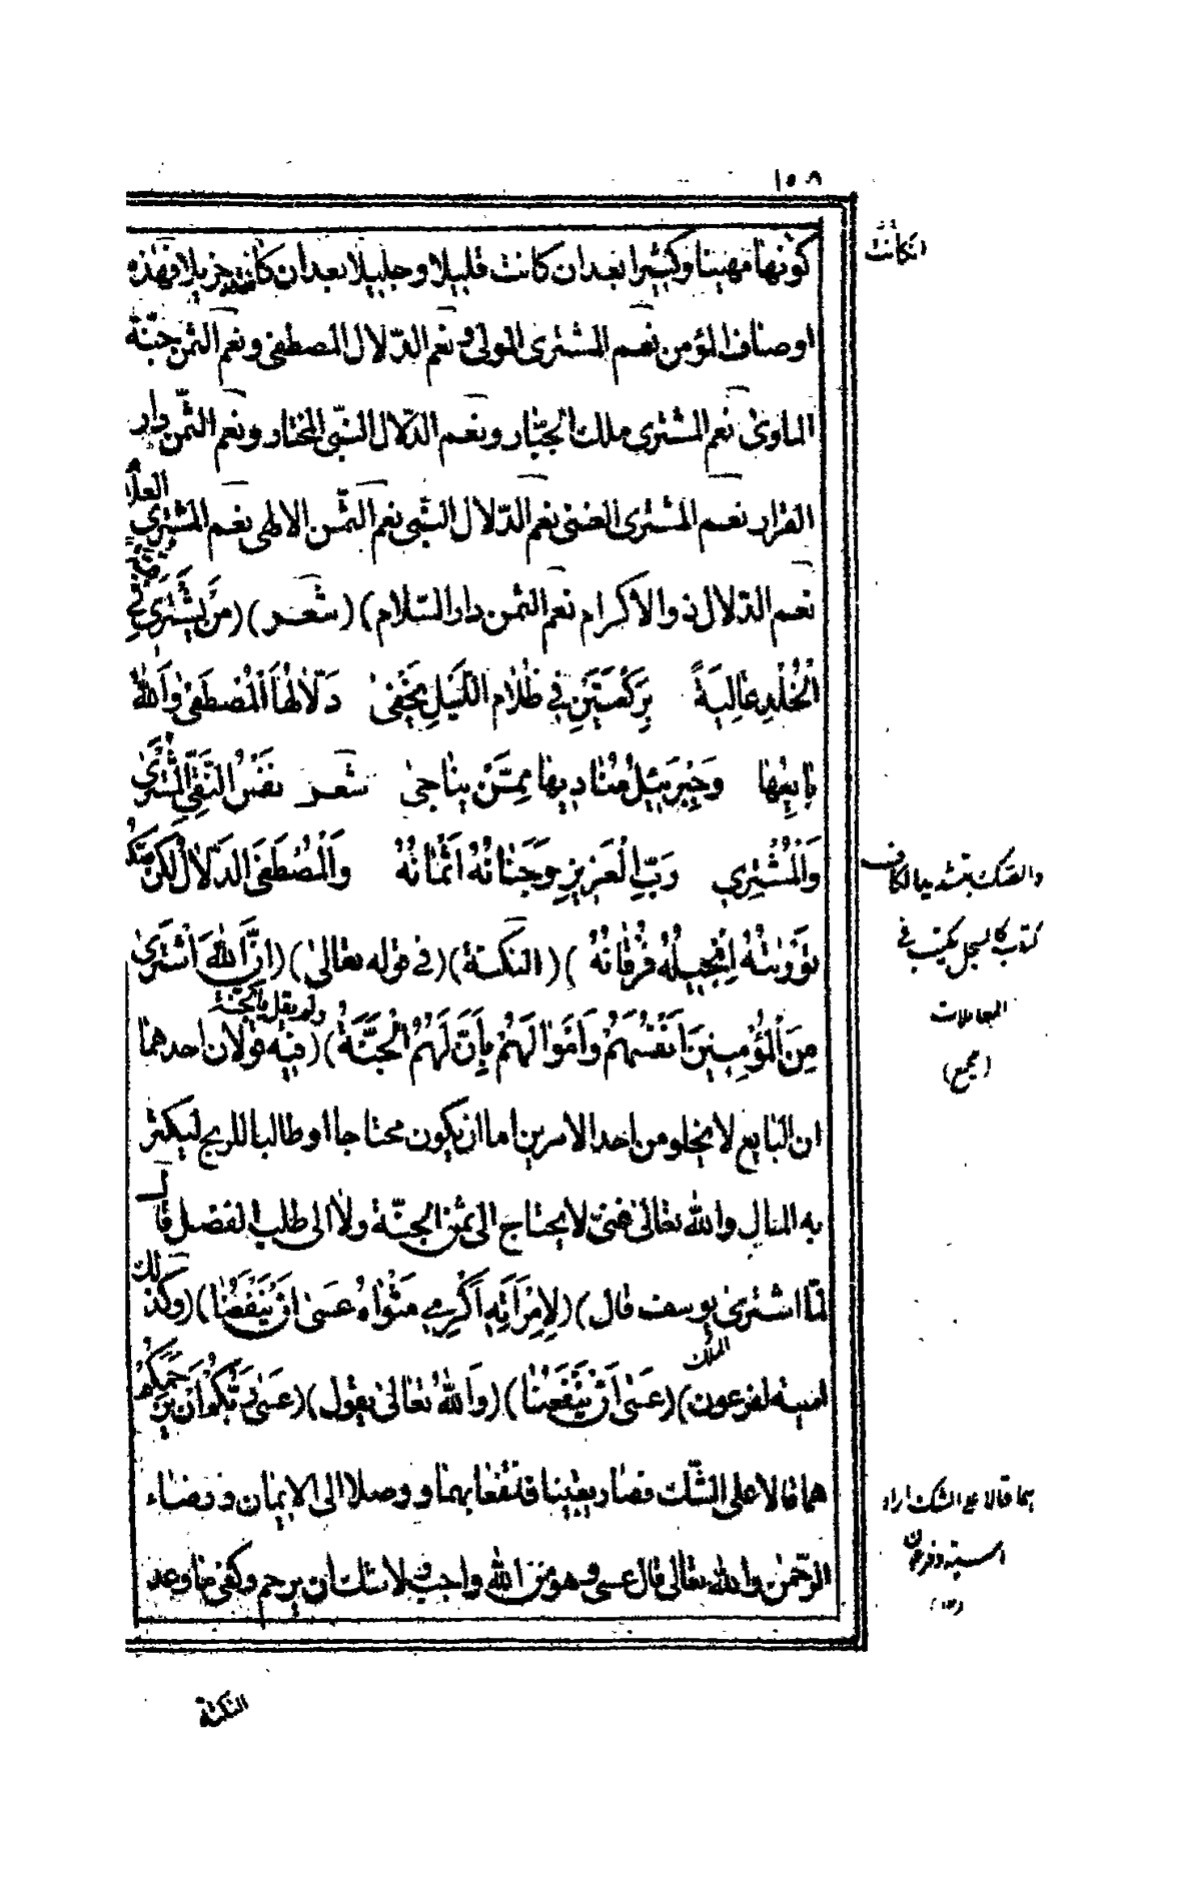 ١٥٨
كونها مهينا وكثيرا بعد ان كانت قليلا وجليلا بعد ان كانت فهذه
اوصاف المؤمن نعم المشترى المولى و نعم الدّلال المصطفى ونعم الثمن جنّة
الماوى نعم المشترى ملك الجبّار ونعم الدّلال النبّى المختار ونعم الثّمن دار
القرار نعم المشترى الغنى نعم الدّلال النّبى نعم الثّمن الالهى نعم المشترى العلّام
نعم الدّلال ذو الاكرام نعم الثمن دار السّلام) (شعر) (مَنْ يَشْتَرِى فِى
الْخُلْدِ عَالِيَةً بِرَكْعَتَيْنِ فِي ظَلَامِ اللَّيْلِ يَخْفٰى دَلَّالُهَا اَلْمُصْطَفٰى وَاللّٰهُ
بَايِعُهَا وَجِبْرَئِيْلُ مُنَادِيهَا مِمَّنْ يناجى شعر نَفْسُ التَّقِىِّ
وَالْمُشْتَرِي رَبِّ الْعَزِيزِ وَجَنَانُهُ اَثْمَانُهُ وَالْمُصْطَفَى الدَلَّالُ لٰكِنْ صَكُّهُ
تَوْرٰيتُهُ اِنْجِيلُهُ فُرْقَانُهُ ) (النكتة) (فى قوله تعالى) (اِنَّ اللّٰهَ اشْتَرٰى
مِنَ الْمُؤْمِنِينَ اَنْفُسَهُمْ وَاَمْوَالَهُمْ بِاَنَّ لَهُمُ الْجَنَّةَ) (ولم يقل بالجنة فيه قولان احدهما
ان البايع لا يخلو من احد الامرين اما ان يكون محتاجا او طالبا للربح ليكثر
به المال والله تعالى غنىّ لا يحتاج الى ثمن الجنّة ولا الى طلب الفضل قال
لمّا اشترى يوسف قال) (لِامْرَاَتِهِ اَكْرِمِي مَثْوَاهُ عَسٰى اَنْ يَنْفَعَنَا) (وكذلك
اسية لفرعون الملك) (عَسٰى اَنْ يَنْفَعَنَا) (وَاللّٰهُ تعالى يقول) (عَسٰى رَبُّكُمْ اَنْ يَرْحَمَكُمْ
هما قالا على الشّك فصار يقينا فنفعا بهما ووصلا الى الايمان ورضاء
الرّحمن والله تعالى قال عسى وهو من الله واجب فلا شك ان يرحم وكفى ما وعد
النكتة
ان كانت
والصك بتشديد الكاف
كتاب كالسجل يكتب فى
المعاملات
(مجمع)
هما قالا على الشك اراد
اسية وفرعون